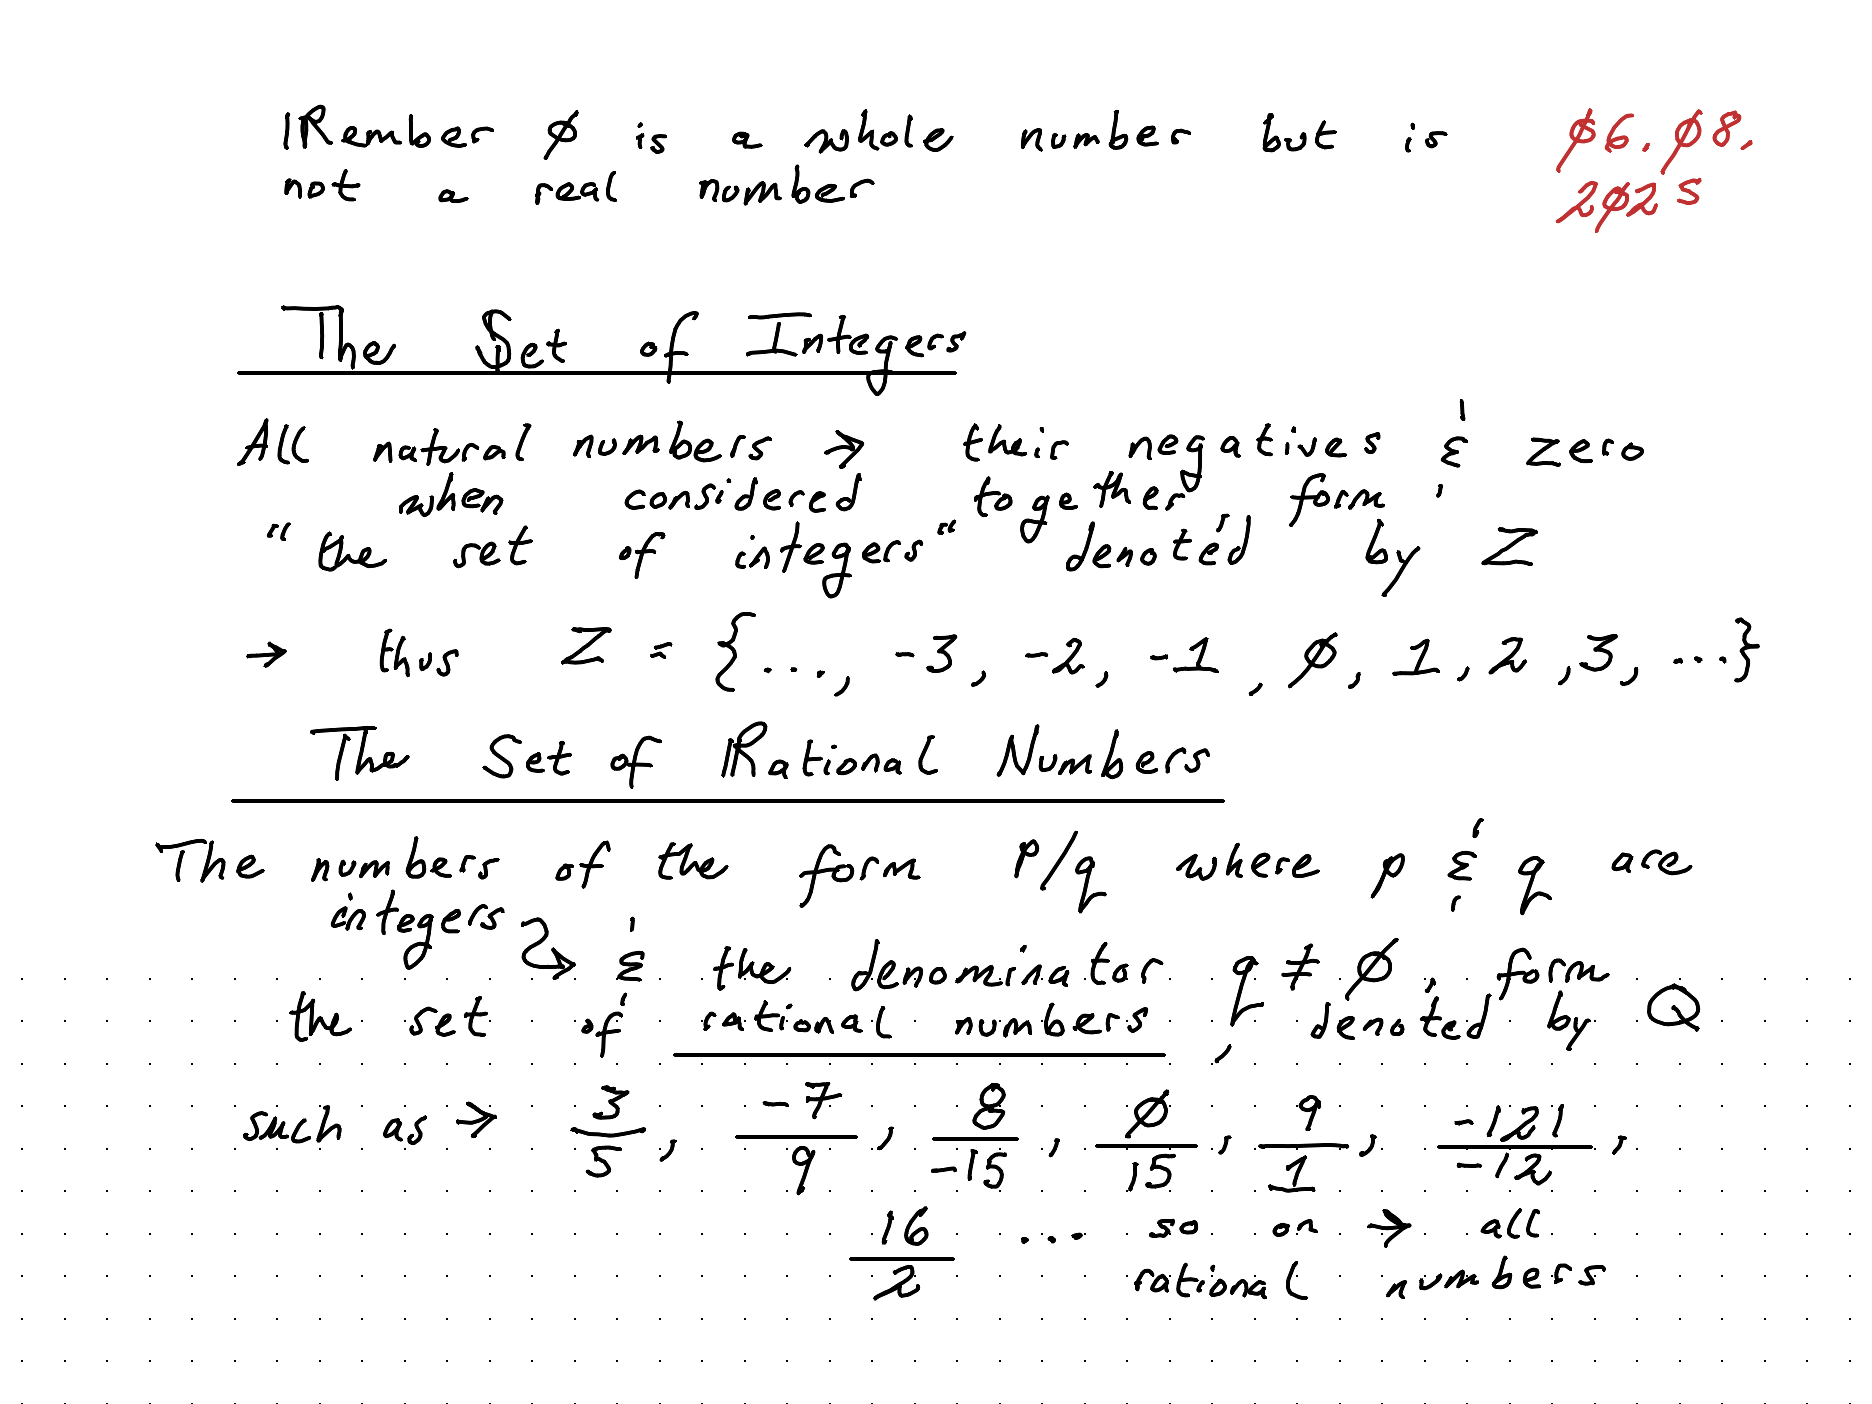 Rember 0 is a whole number but is
not a real number
06.08.
2025
The Set of Integers
All natural numbers → their negatives & zero
when considered together, form
"the set of integers" denoted by Z
→ thus Z = {..., -3, -2, -1, 0, 1, 2, 3, ...}
The Set of Rational Numbers
The numbers of the form P/q where p & q are
integers
& the denominator q ≠ 0, form
the set of rational numbers, denoted by Q
such as → 3/5, -7/9, 8/-15, 0/15, 9/1, -121/-12,
16/2 ... so on → all
rational numbers